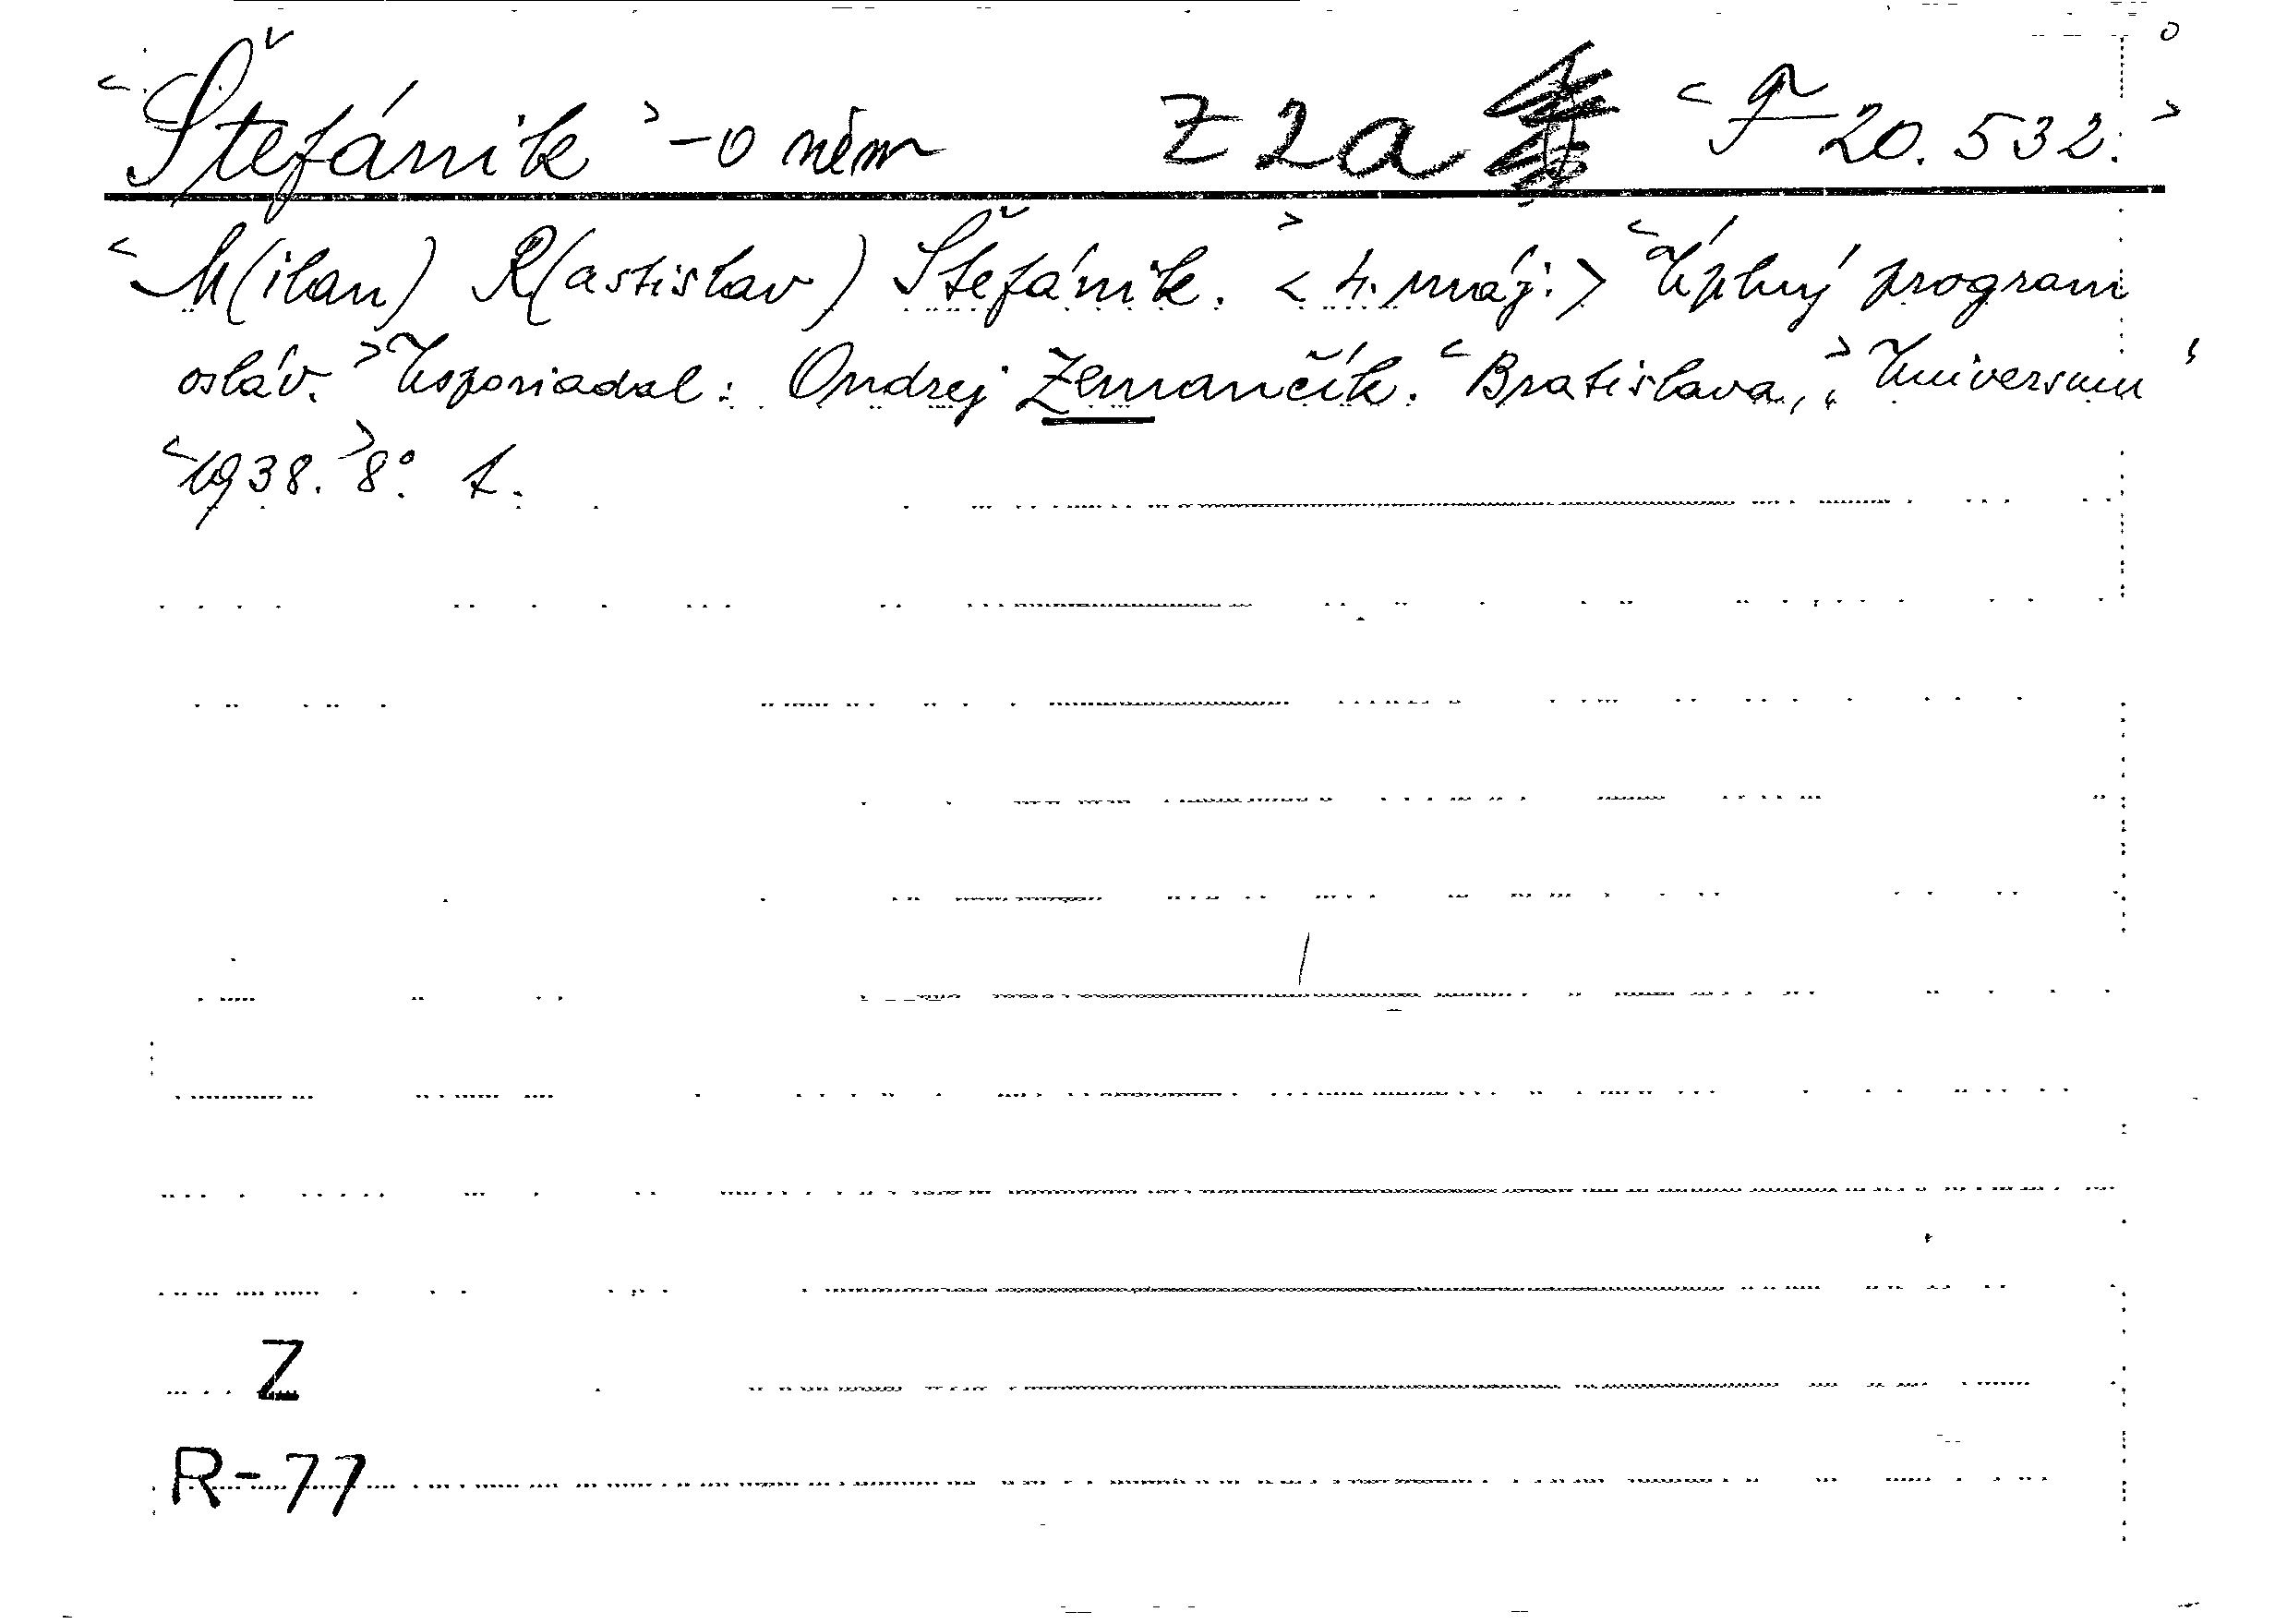 <Štefánik> - o něm Z 2a <F 20.532.>
<M(ilan) R(astislav) Štefánik.> <4. máj.> <Úplný program
osláv.> Usporiadal: Ondrej Zemančík. <Bratislava,> „Universum“
<1938.> 8°. 1.
Z
R-77